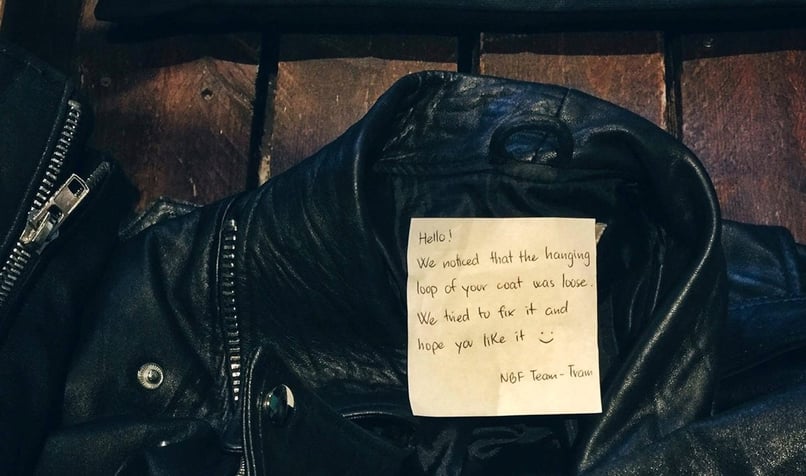 Hello!
We noticed that the hanging
loop of your coat was loose.
We tried to fix it and
hope you like it :)
NBF Team - Tram